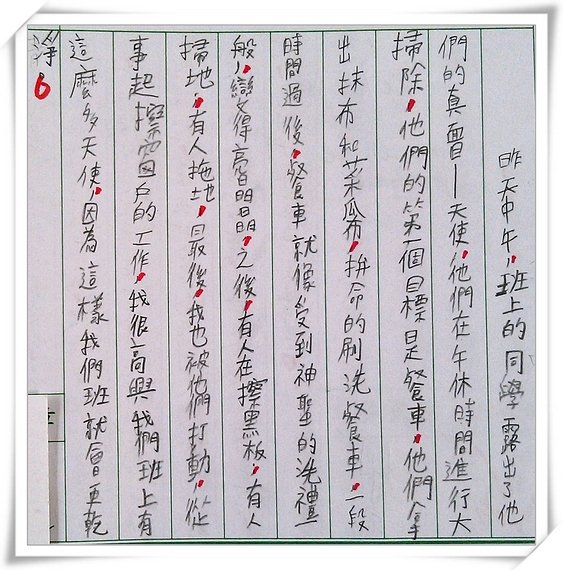 昨天中午,班上的同學露出了他
們的真面—天使,他們在午休時間進行大
掃除,他們的第一個目標是餐車,他們拿
出抹布和菜瓜布,拚命的刷洗餐車,一段
時間過後,餐車就像受到神聖的洗禮
般,變得亮晶晶,之後,有人在擦黑板,有人
掃地,有人拖地,最後,我也被他們打動,從
事起擦窗戶的工作,我很高興我們班上有
這麼多天使,因為這樣我們班就會更乾
淨。